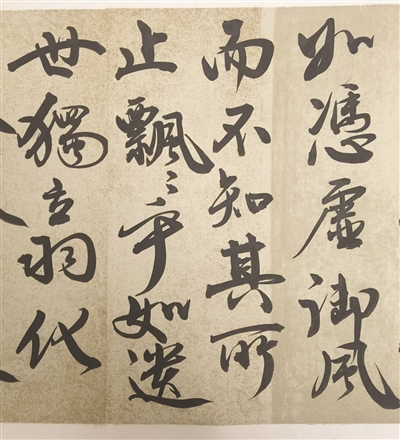 如憑虛御風
而不知其所
止飄〻乎如遺
世獨立羽化